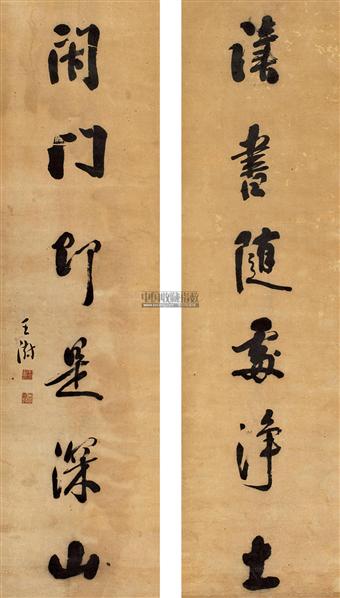 讀書隨處淨土
閉門即是深山
王澍
中国收藏指数